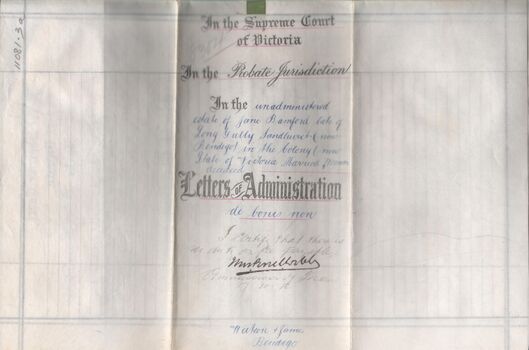 11081-3a
In the Supreme Court
of Victoria
In the Probate Jurisdiction
In the unadministered
estate of Jane Bamford late of
Long Gully Sandhurst (now
Bendigo) in the Colony (now
State of Victoria Married Woman
deceased
Letters of Administration
de bonis non
I certify that
of
Watson & James
Bendigo